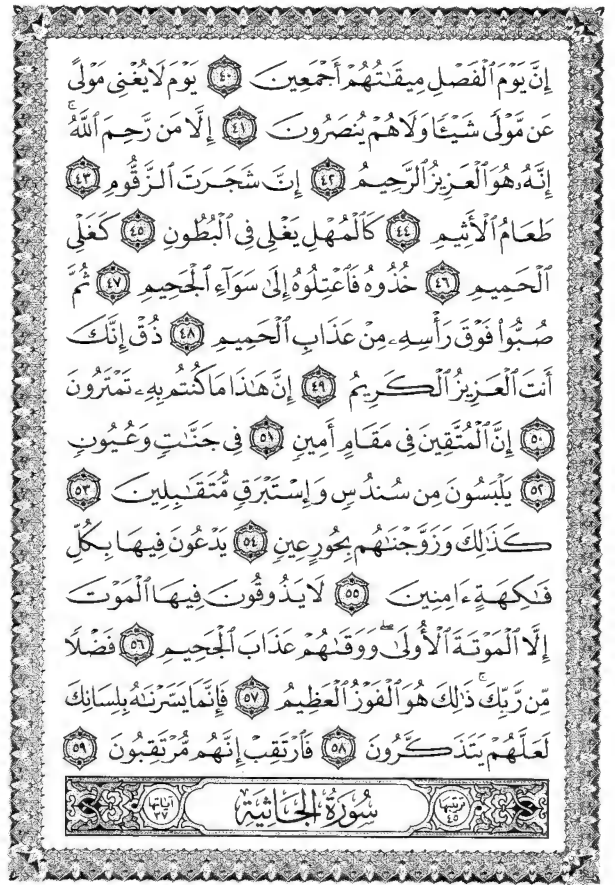 إِنَّ يَوْمَ ٱلْفَصْلِ مِيقَٰتُهُمْ أَجْمَعِينَ ٤٠ يَوْمَ لَا يُغْنِى مَوْلًى
عَن مَّوْلًى شَيْـًٔا وَلَا هُمْ يُنصَرُونَ ٤١ إِلَّا مَن رَّحِمَ ٱللَّهُۚ
إِنَّهُۥ هُوَ ٱلْعَزِيزُ ٱلرَّحِيمُ ٤٢ إِنَّ شَجَرَتَ ٱلزَّقُّومِ ٤٣
طَعَامُ ٱلْأَثِيمِ ٤٤ كَٱلْمُهْلِ يَغْلِى فِى ٱلْبُطُونِ ٤٥ كَغَلْىِ
ٱلْحَمِيمِ ٤٦ خُذُوهُ فَٱعْتِلُوهُ إِلَىٰ سَوَآءِ ٱلْجَحِيمِ ٤٧ ثُمَّ
صُبُّوا۟ فَوْقَ رَأْسِهِۦ مِنْ عَذَابِ ٱلْحَمِيمِ ٤٨ ذُقْ إِنَّكَ
أَنتَ ٱلْعَزِيزُ ٱلْكَرِيمُ ٤٩ إِنَّ هَٰذَا مَا كُنتُم بِهِۦ تَمْتَرُونَ
٥٠ إِنَّ ٱلْمُتَّقِينَ فِى مَقَامٍ أَمِينٍ ٥١ فِى جَنَّٰتٍ وَعُيُونٍ
٥٢ يَلْبَسُونَ مِن سُندُسٍ وَإِسْتَبْرَقٍ مُّتَقَٰبِلِينَ ٥٣
كَذَٰلِكَ وَزَوَّجْنَٰهُم بِحُورٍ عِينٍ ٥٤ يَدْعُونَ فِيهَا بِكُلِّ
فَٰكِهَةٍ ءَامِنِينَ ٥٥ لَا يَذُوقُونَ فِيهَا ٱلْمَوْتَ
إِلَّا ٱلْمَوْتَةَ ٱلْأُولَىٰۖ وَوَقَىٰهُمْ عَذَابَ ٱلْجَحِيمِ ٥٦ فَضْلًا
مِّن رَّبِّكَۚ ذَٰلِكَ هُوَ ٱلْفَوْزُ ٱلْعَظِيمُ ٥٧ فَإِنَّمَا يَسَّرْنَٰهُ بِلِسَانِكَ
لَعَلَّهُمْ يَتَذَكَّرُونَ ٥٨ فَٱرْتَقِبْ إِنَّهُم مُّرْتَقِبُونَ ٥٩
ترتيبها ٤٥ سُورَةُ الجَاثِيَةِ آياتها ٣٧